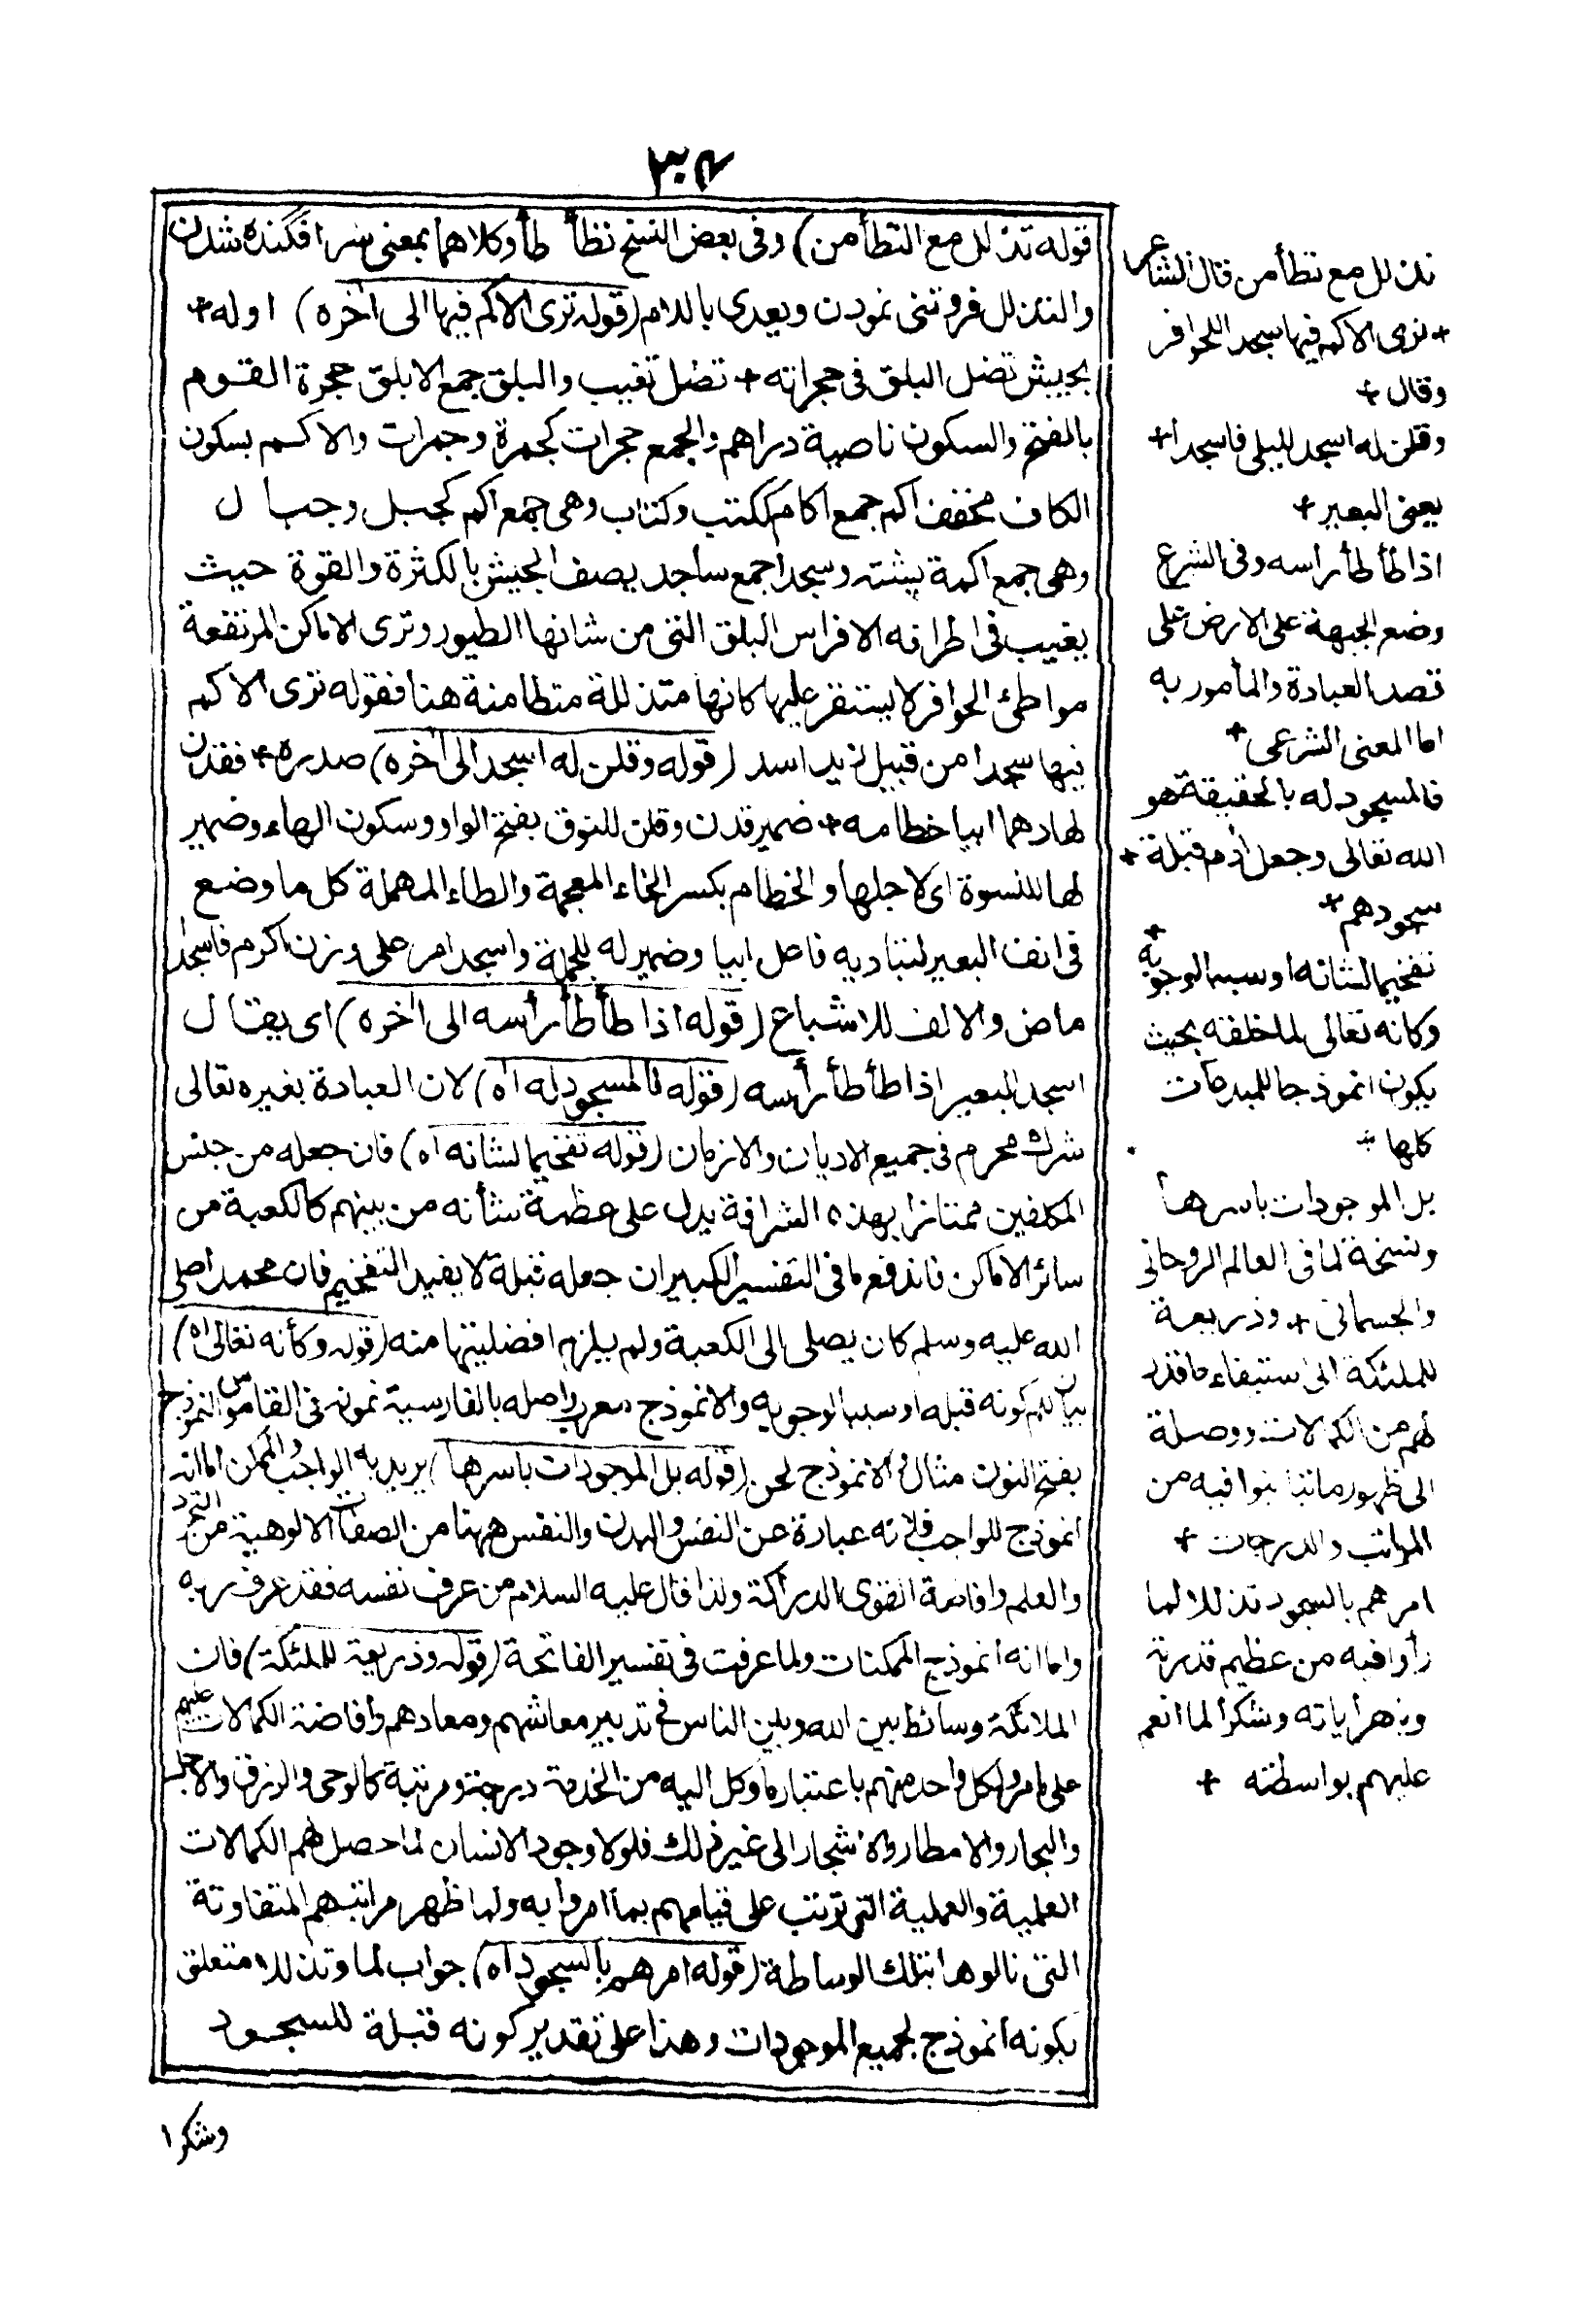 ٣٠٤
قوله تذلل مع التطأمن) وفى بعض النسخ تطأ طأ وكلاهما بمعنى سر افگنده شدن
والتذلل فروتنى نمودن ويعدى باللام (قوله ترى الاكم فيها الى اخره) اوله +
بجيش تضل البلق فى حجراته + تضل تغيب والبلق جمع الابلق حجرة القوم
بالفتح والسكون ناصية دراهم والجمع حجرات كجمرة وجمرات والاكم بسكون
الكاف مخفف اكم جمع اكام ككتب وكتاب وهى جمع اكم كجبل وجبال
وهى جمع اكمة پشته وسجدا جمع ساجد يصف الجيش بالكثرة والقوة حيث
يغيب فى اطرافه الافراس البلق التى من شانها الظهور وترى الاماكن المرتفعة
مواطئ الحوافر لا يستنفر عليها كانها متذللة متطامنة هنا فقوله ترى الاكم
فيها سجدا من قبيل زيد اسد (قوله وقلن له اسجد الى اخره) صدره + فقدن
لها دهما ابيا خطامه + ضمير قدن وقلن للنوق بفتح الواو وسكون الهاء وضمير
لها للنسوة اى لاجلها والخطام بكسر الخاء المعجمة والطاء المهملة كل ما وضع
فى انف البعير لينادبه فاعل ابيا وضمير له للجملة واسجد امر على وزن اكرم فاسجد
ماض والالف للاشباع (قوله اذا طأطأ رأسه الى اخره) اى يقال
اسجد البعير اذا طأطأ رأسه (قوله فالمسجود له اه) لان العبادة بغيره تعالى
شرك محرم فى جميع الاديان والازمان (قوله تفخيما لشانه اه) فان جعله من جنس
المكلفين ممتازا بهذه الشرافة يدل على عظمة شأنه من بينهم كالكعبة من
سائر الاماكن فاندفع ما فى التفسير الكبير ان جعله قبلة لا يفيد التفخيم فان محمدا صلى
الله عليه وسلم كان يصلى الى الكعبة ولم يلزم افضليتها منه (قوله وكأنه تعالى اه)
بيان لكونه قبلة او سببا لوجوبه والانموذج معرب واصله بالفارسية نمونه فى القاموس النموذج
بفتح النون مثال والانموذج لحن (قوله بل الموجودات باسرها) يريد به الواجب والممكن اما انه
انموذج للواجب فلانه عبارة عن النفس والبدن والنفس ههنا من الصفات الالوهية من التجرد
والعلم وافاضة القوى الدراكة ولذا قال عليه السلام من عرف نفسه فقد عرف ربه
واما انه انموذج الممكنات ولما عرفت فى تفسير الفاتحة (قوله وذريعة للملئكة) فان
الملائكة وسائط بين الله وبين الناس فى تدبير معاشهم ومعادهم وافاضة الكمالات عليهم
على ما مر ولكل واحد منهم باعتبار ما وكل اليه من الخدمة درجة ومرتبة كالوحى والرزق والاجل
والبحار والامطار والاشجار الى غير ذلك فلولا وجود الانسان لما حصل لهم الكمالات
العلمية والعملية التى ترتب على قيامهم بما امروا به ولما ظهر مراتبهم المتفاوتة
التى نالوها بتلك الوساطة (قوله امرهم بالسجود اه) جواب لما وتذللا متعلق
بكونه انموذج لجميع الموجودات وهذا على تقدير كونه قبلة للسجود
وشكرا
تذلل مع تطأمن قال الشاعر
+ ترى الاكم فيها سجدا للحوافر
وقال +
وقلن له اسجد لليلى فاسجدا +
يعنى البعير +
اذا طأطأ راسه وفى الشرع
وضع الجبهة على الارض على
قصد العبادة والمأمور به
اما المعنى الشرعى +
فالمسجود له بالحقيقة هو
الله تعالى وجعل ادم قبلة +
سجودهم +
تفخيما لشانه او سببا لوجوبه +
وكانه تعالى لما خلقه بحيث
يكون انموذجا للمبدعات
كلها +
بل الموجودات باسرها
ونسخة لما فى العالم الروحانى
والجسمانى + وذريعة
للملئكة الى استيفاء ما قدر
لهم من الكمالات ووصلة
الى ظهور ما تباينوا فيه من
المراتب والدرجات +
امرهم بالسجود تذللا لما
رأوا فيه من عظيم قدرته
وبهر اياته وشكرا لما انعم
عليهم بواسطته +